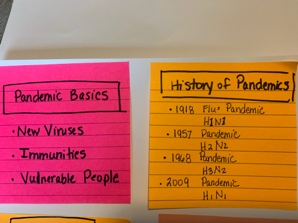 Pandemic Basics
· New Viruses
· Immunities
· Vulnerable People
History of Pandemics
· 1918 Flu Pandemic
H1N1
· 1957 Pandemic
H2N2
· 1968 Pandemic
H3N2
· 2009 Pandemic
H1N1